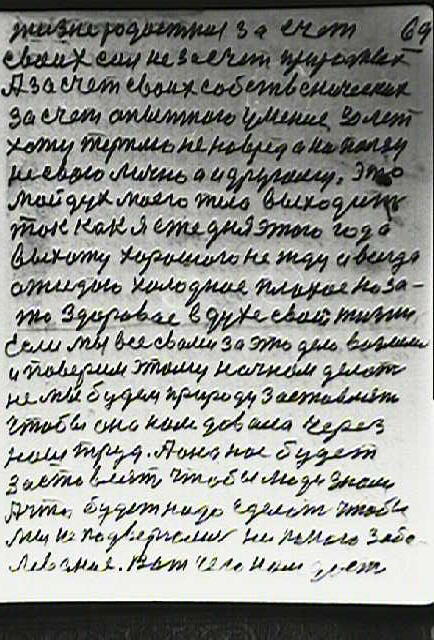 жизнерадостная за счет 69
своих сил не за счет природных
А за счет своих собственических
за счет опытного умение 30 лет
хожу терплю не на вред а на пользу
не свого лично а и другому, Это
мой дух моего тела выходить
так как я ежедня этого года
выхожу хорошого не жду а всегда
ожидаю холодное плохое но за-
то здоровае в духе своей жизни
Если мы все свами за это дело возмемся
и поверим этому начнем делать
не мы будем природу заставлять
чтобы она нам давала через
наш труд. А она нас будет
заставлять чтобы люди знали
А что будет надо сделать чтобы
мы не подвергались не какого забо-
левания. Вот чего нам дает